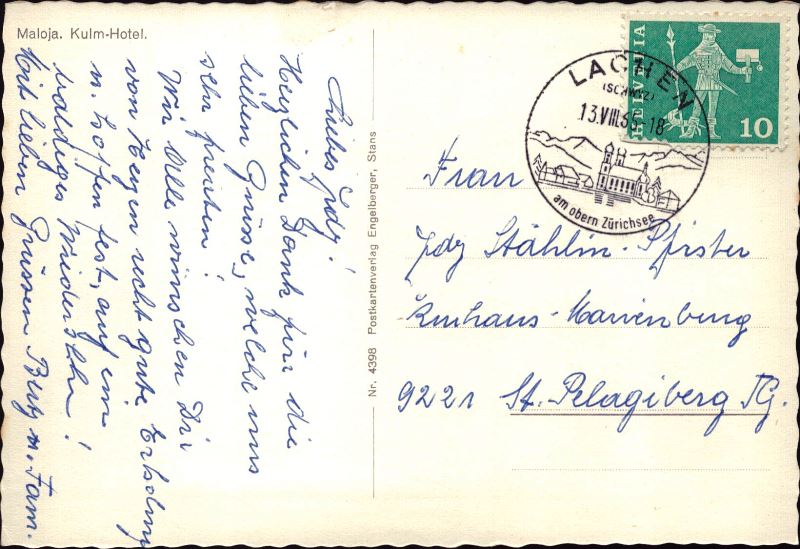 Maloja. Kulm-Hotel.
Liebes Idy!
Herzlichen Dank für die
lieben Grüsse, welche uns
sehr freuten!
Wir Alle wünschen Dir
von Herzen recht gute Erholung
u. hoffen fest, auf ein
baldiges Wiedersehn!
Mit lieben Grüssen u. Fam.
Nr. 4398 Postkartenverlag Engelberger, Stans
HELVETIA
10
LACHEN
(SCHWYZ)
13.VIII.65-18
am obern Zürichsee
Frau
Idy Stählin-Pfister
Kurhaus-Marienburg
9221 St. Pelagiberg TG.